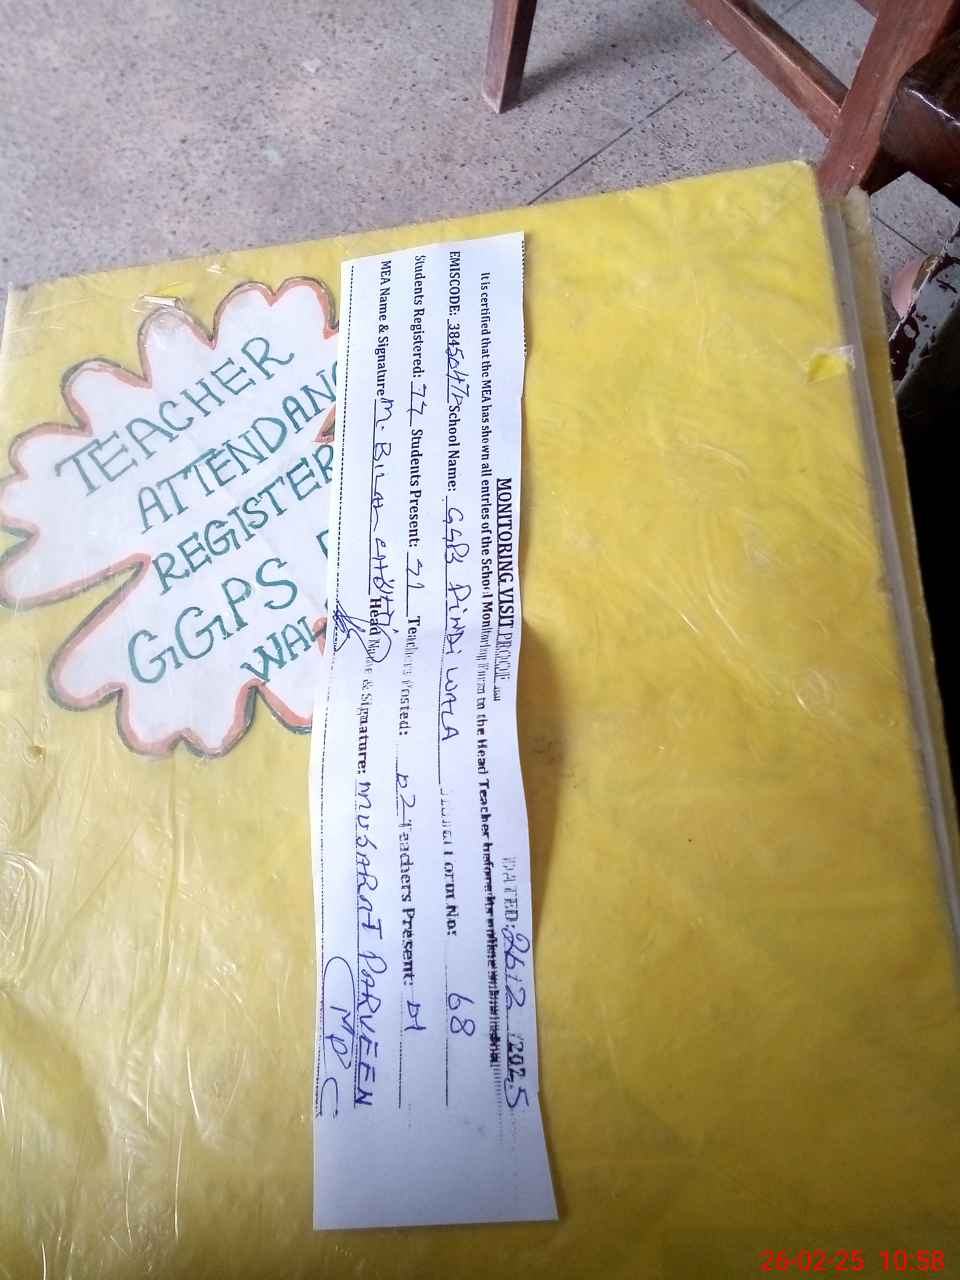 TEACHER
ATTENDANC
REGISTER
GGPS
WAL
MONITORING VISIT PROOF
DATED: 26/2/2025
It is certified that the MEA has shown all entries of the School Monitoring Form to the Head Teacher before its online submission
EMISCODE: School Name: GGPS PINDI WALA Form No: 68
Students Registered: 77 Students Present: Teachers Posted: 02 Teachers Present: 01
MEA Name & Signature M. BILAL Head Name & Signature: MUSARAT PARVEEN
26-02-25 10:58